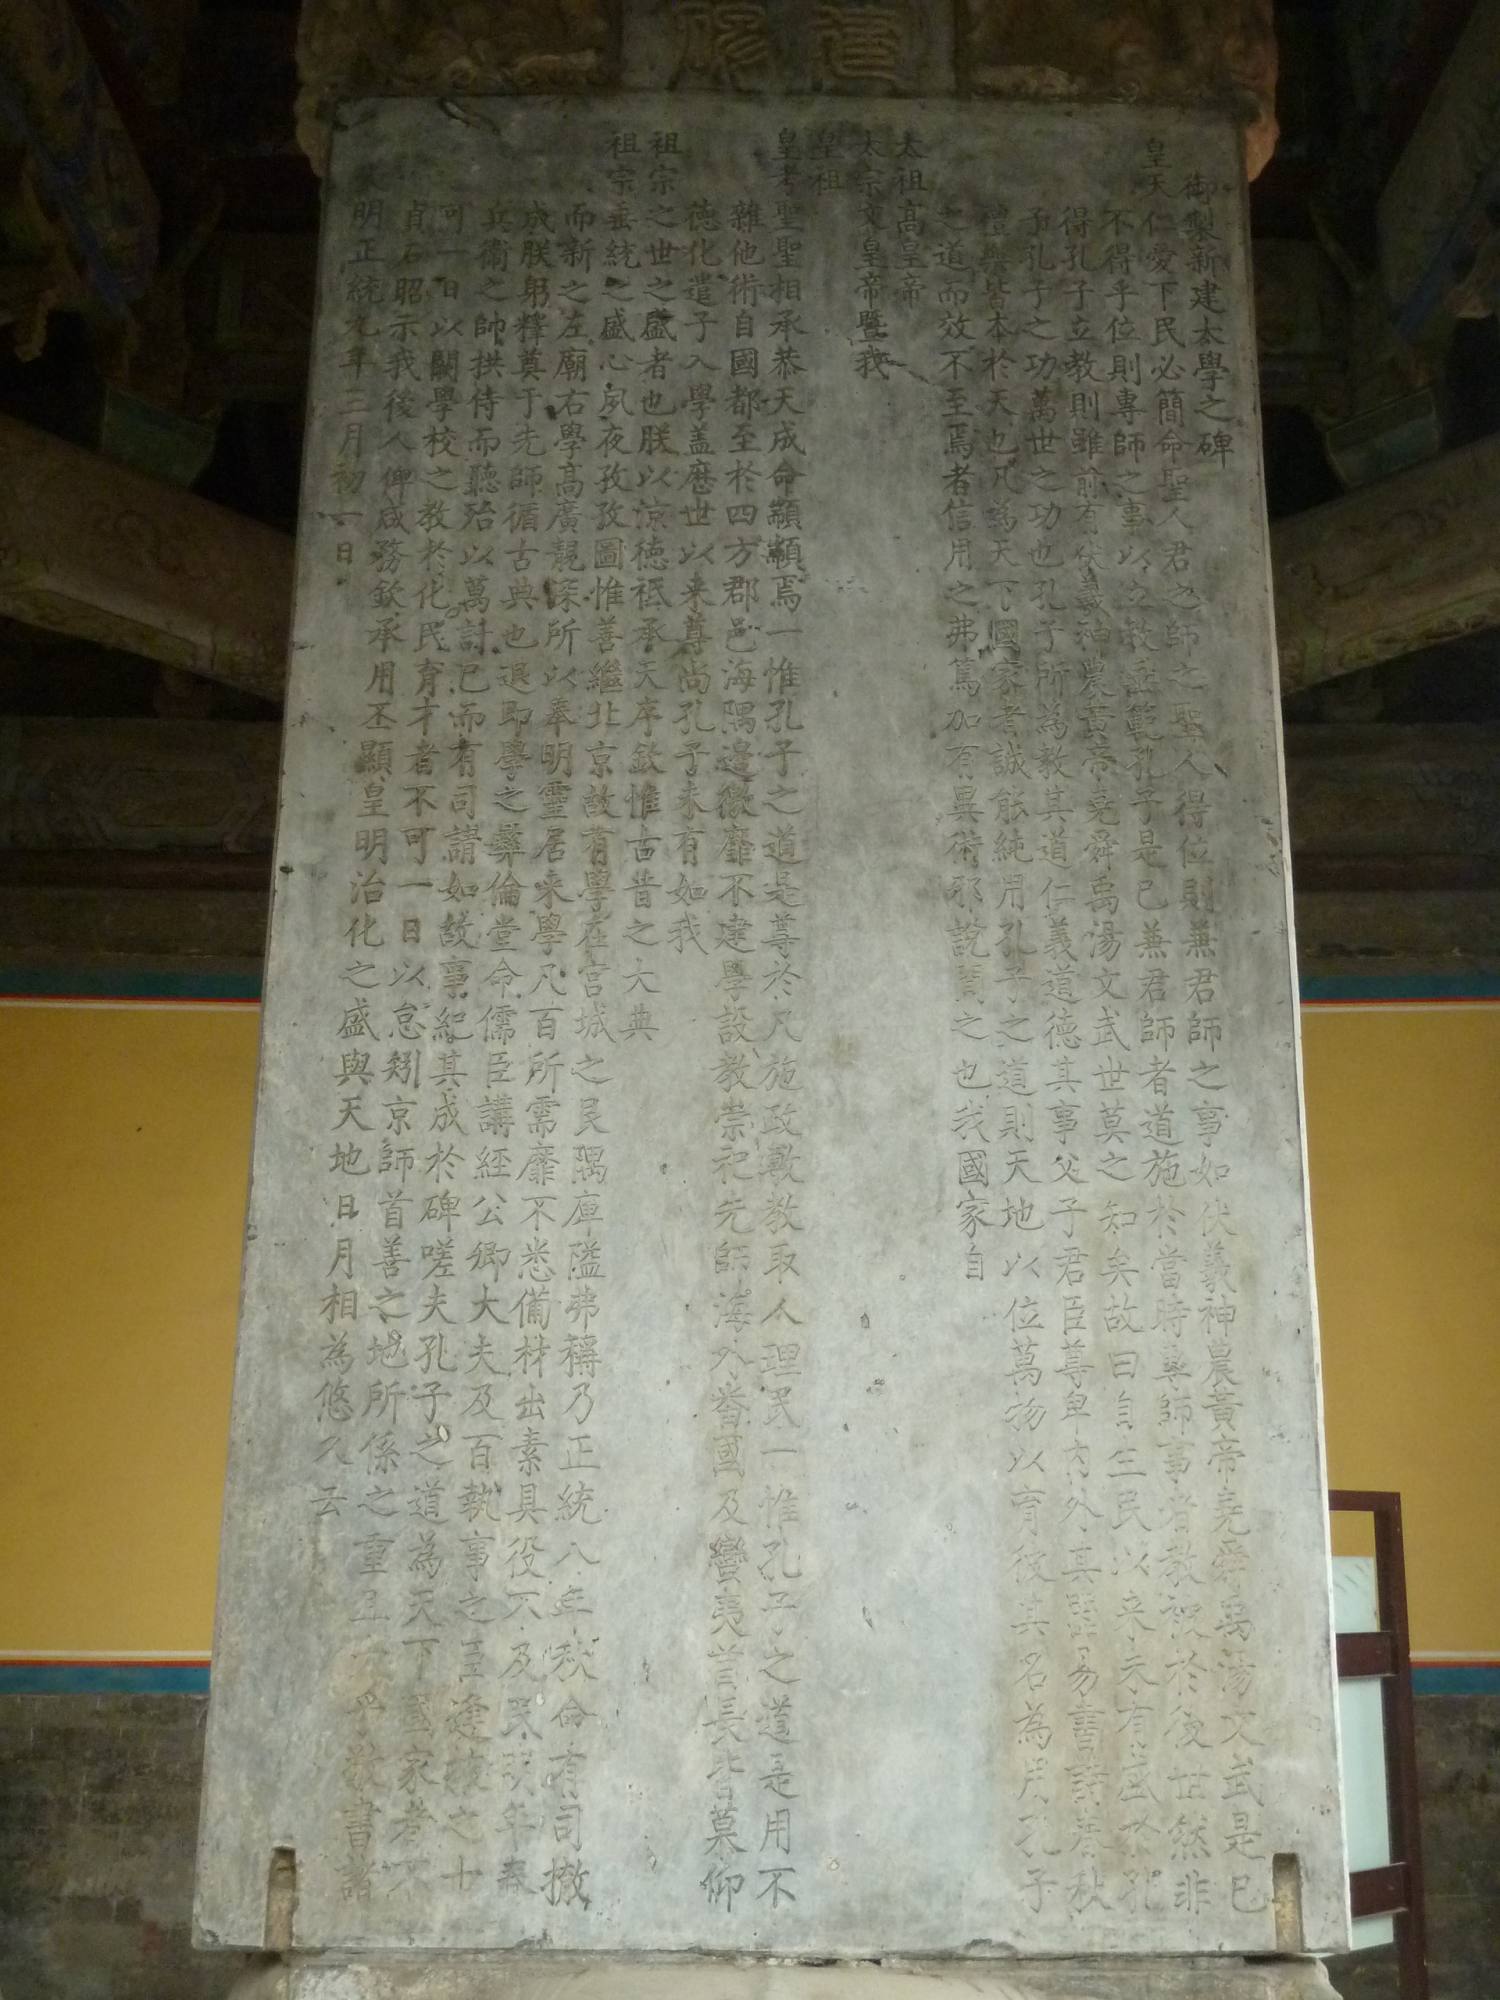 御製新建太學之碑
皇天仁愛下民必簡命聖人君之師之聖人得位則兼君師之事如伏羲神農黃帝堯舜禹湯文武是已
不得乎位則專師之事以立教垂範孔子是已兼君師者道施於當時專師事者教被於後世然非
得孔子立教則雖前有伏羲神農黃帝堯舜禹湯文武世莫之知矣故曰自生民以來未有盛於孔
子孔子之功萬世之功也孔子所為教其道仁義道德其事父子君臣尊卑內外其詩易書詩春秋
禮樂皆本於天也凡為天下國家者誠能純用孔子之道則天地以位萬物以育後其名為用孔子
之道而效不至焉者信用之弗篤加有異術邪說間之也我國家自
太祖高皇帝
太宗文皇帝暨我
皇祖
皇考聖聖相承恭天成命顒顒焉一惟孔子之道是尊於凡施政敷教取人理民一惟孔子之道是用不
雜他術自國都至於四方郡邑海隅邊徼靡不建學設教崇祀先師海外番國及蠻夷酋長皆慕仰
德化遣子入學蓋歷世以来尊尚孔子未有如我
祖宗之世之盛者也朕以涼德祗承天序欽惟古昔之大典
祖宗垂統之盛心夙夜孜孜圖惟善繼北京故有學在宮城之艮隅庫隘弗稱乃正統八年秋命有司撤
而新之左廟右學高廣靚深所以奉明靈居来學凡百所需靡不悉備材出素具役不及民明年春
成朕躬釋奠于先師循古典也退即學之彝倫堂命儒臣講經公卿大夫及百執事之臣逢掖之士
兵衛之帥拱侍而聽殆以萬計已而有司請如故事紀其成於碑嗟夫孔子之道為天下國家者不
可一日以闕學校之教於化民育才者不可一日以怠矧京師首善之地所係之重且大乎敬書諸
貞石昭示我後人俾咸務欽承用丕顯皇明治化之盛與天地日月相為悠久云
大明正統九年三月初一日